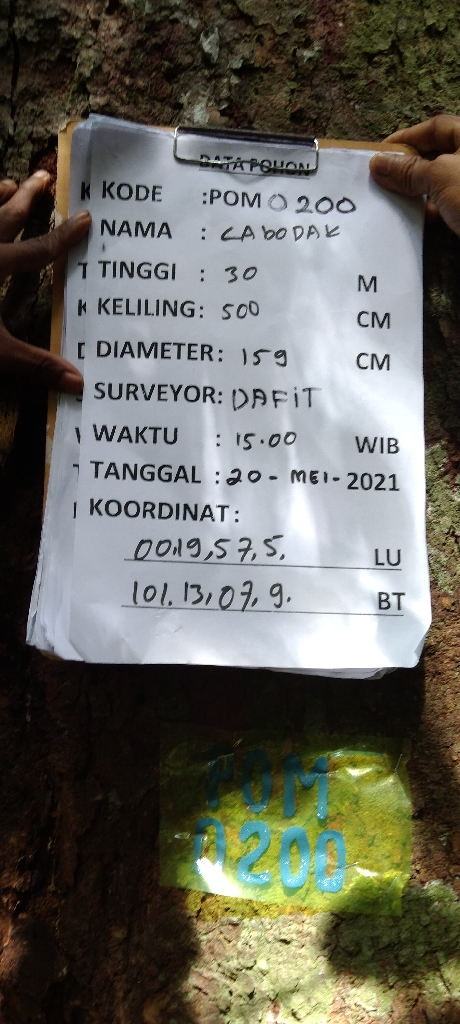 DATA POHON
KODE :POM 0200
NAMA : CABODAK
TINGGI : 30 M
KELILING: 500 CM
DIAMETER: 159 CM
SURVEYOR: DAFiT
WAKTU : 15.00 WIB
TANGGAL : 20 - MEI - 2021
KOORDINAT:
00.19,57,5. LU
101.13,07,9. BT
POM
0200